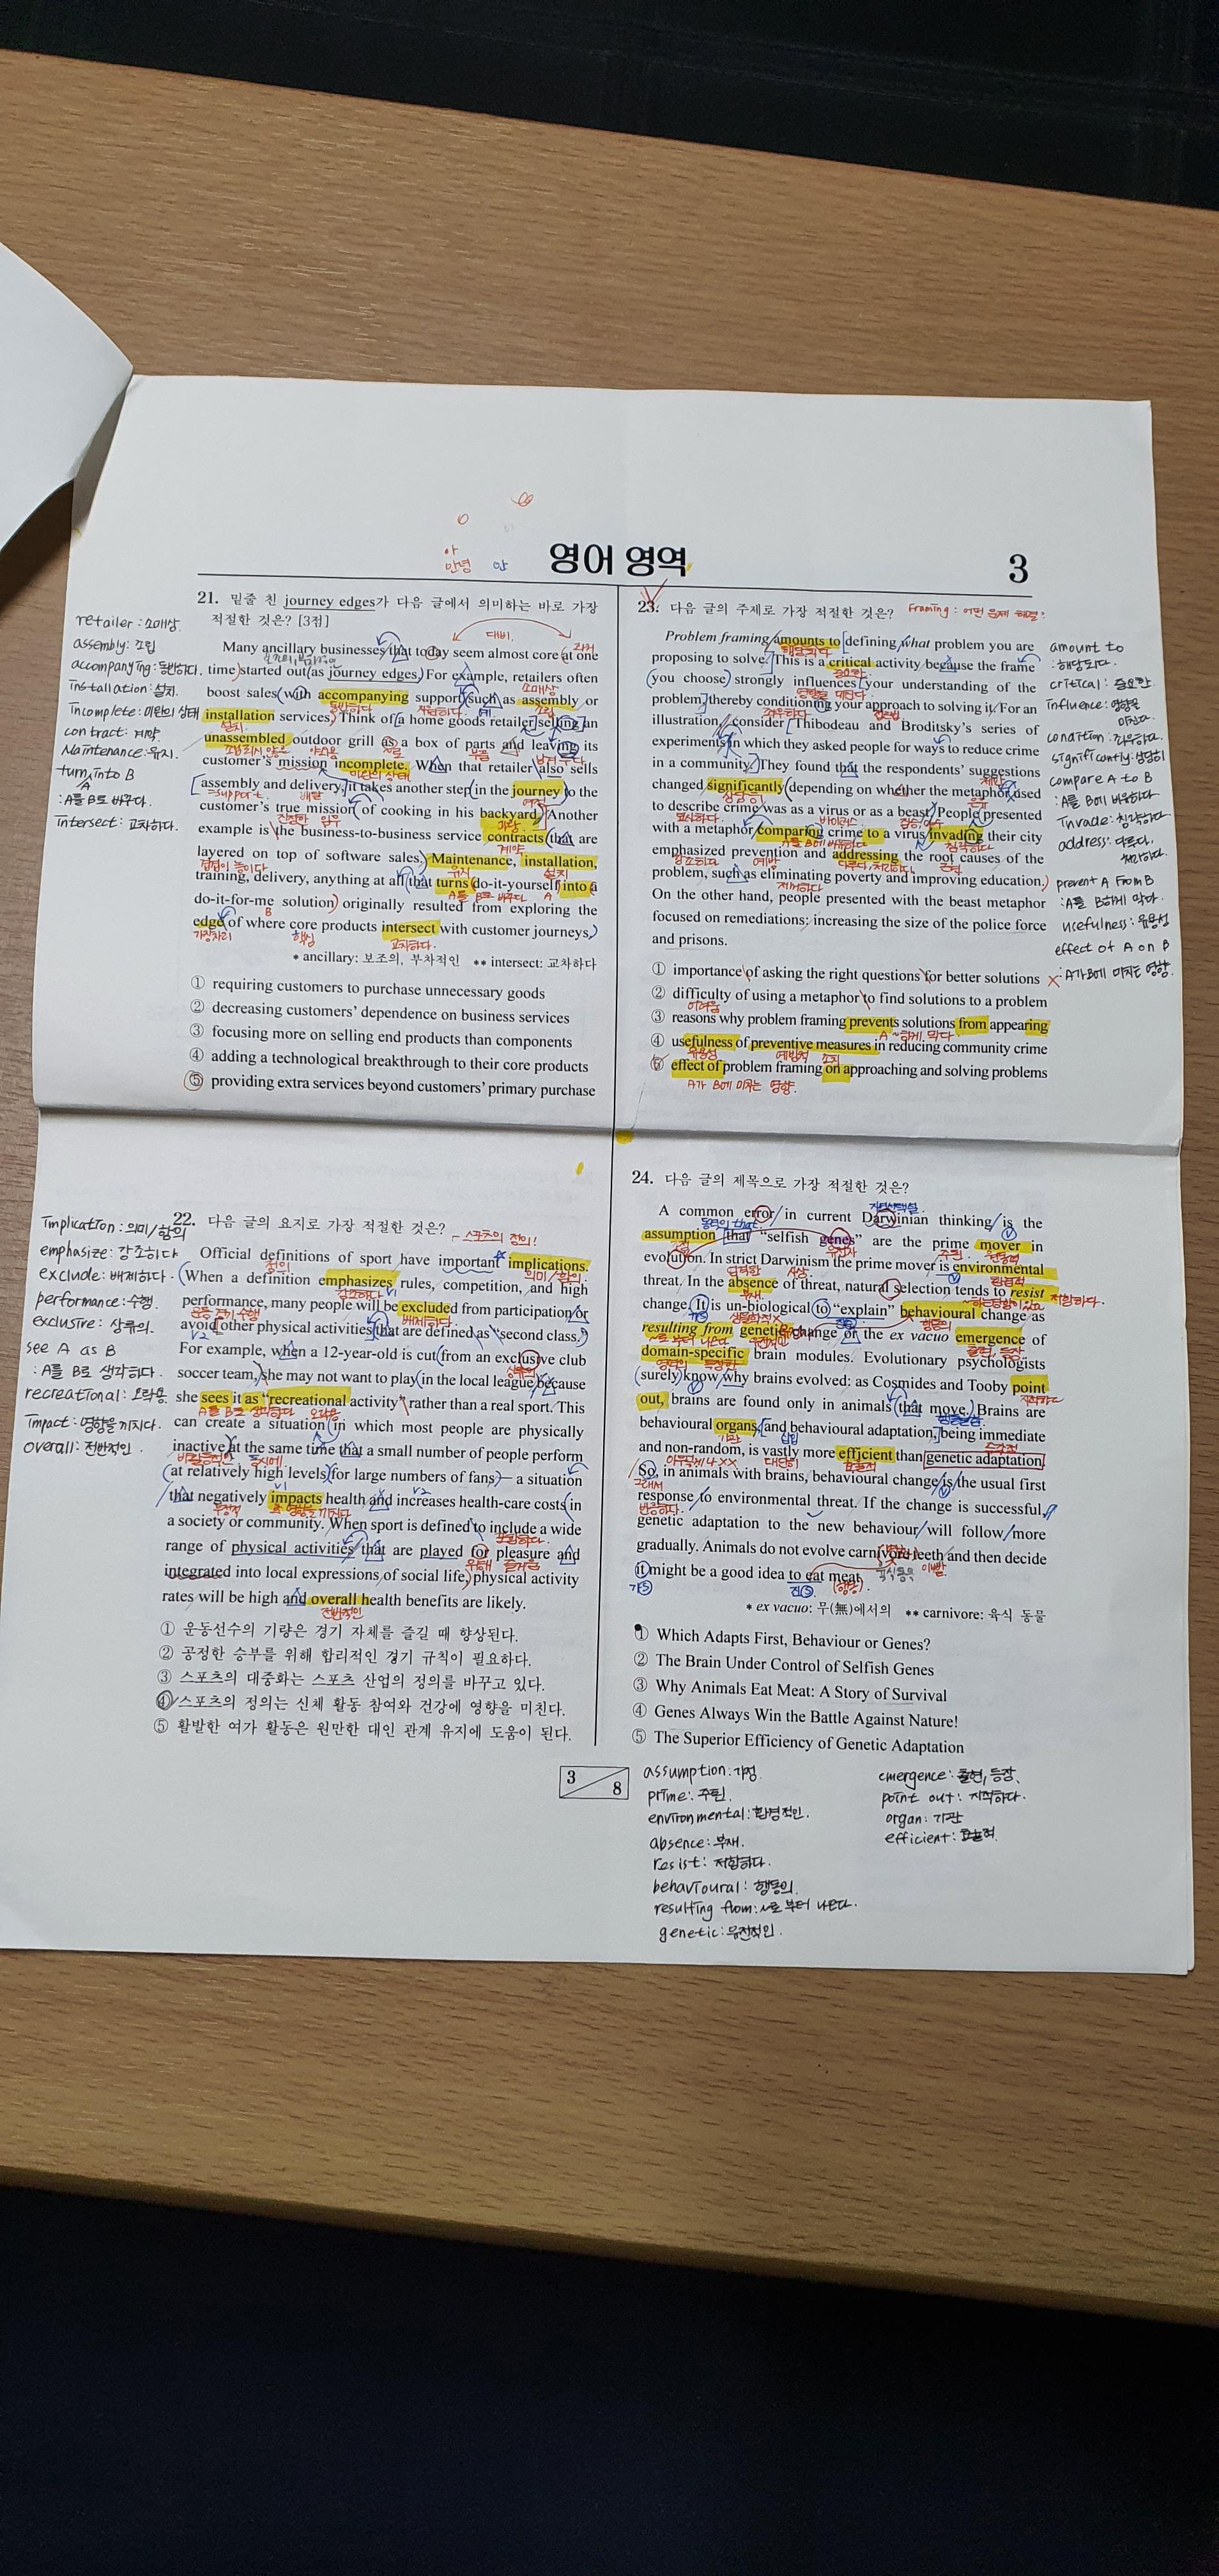 영어 영역
3
안녕
retailer : 소매상
assembly : 조립
accompanying : 동반하다.
installation : 설치.
incomplete : 미완의 상태
contract : 계약
Maintenance : 유지.
turn A into B
: A를 B로 바꾸다.
intersect : 교차하다.
21. 밑줄 친 journey edges가 다음 글에서 의미하는 바로 가장
적절한 것은? [3점]
대비.
Many ancillary businesses that today seem almost core at one
time started out as journey edges. For example, retailers often
boost sales with accompanying support such as assembly or
installation services. Think of a home goods retailer selling an
unassembled outdoor grill as a box of parts and leaving its
customer's mission incomplete. When that retailer also sells
assembly and delivery, it takes another step in the journey to the
customer's true mission of cooking in his backyard. Another
example is the business-to-business service contracts that are
layered on top of software sales. Maintenance, installation,
training, delivery, anything at all that turns do-it-yourself into a
do-it-for-me solution originally resulted from exploring the
edge of where core products intersect with customer journeys.
* ancillary: 보조의, 부차적인 ** intersect: 교차하다
① requiring customers to purchase unnecessary goods
② decreasing customers' dependence on business services
③ focusing more on selling end products than components
④ adding a technological breakthrough to their core products
⑤ providing extra services beyond customers' primary purchase
implication : 의미/함의
emphasize : 강조하다
exclude : 배제하다.
performance : 수행.
exclusive : 상류의.
see A as B
: A를 B로 생각하다.
recreational : 오락용
impact : 영향을 끼치다.
overall : 전반적인.
22. 다음 글의 요지로 가장 적절한 것은?
스포츠의 정의!
Official definitions of sport have important implications.
When a definition emphasizes rules, competition, and high
performance, many people will be excluded from participation or
avoid other physical activities that are defined as "second class."
For example, when a 12-year-old is cut from an exclusive club
soccer team, she may not want to play in the local league because
she sees it as "recreational activity" rather than a real sport. This
can create a situation in which most people are physically
inactive at the same time that a small number of people perform
at relatively high levels for large numbers of fans — a situation
that negatively impacts health and increases health-care costs in
a society or community. When sport is defined to include a wide
range of physical activities that are played for pleasure and
integrated into local expressions of social life, physical activity
rates will be high and overall health benefits are likely.
① 운동선수의 기량은 경기 자체를 즐길 때 향상된다.
② 공정한 승부를 위해 합리적인 경기 규칙이 필요하다.
③ 스포츠의 대중화는 스포츠 산업의 정의를 바꾸고 있다.
④ 스포츠의 정의는 신체 활동 참여와 건강에 영향을 미친다.
⑤ 활발한 여가 활동은 원만한 대인 관계 유지에 도움이 된다.
23. 다음 글의 주제로 가장 적절한 것은?
Framing : 어떤 문제 해결?
Problem framing amounts to defining what problem you are
proposing to solve. This is a critical activity because the frame
you choose strongly influences your understanding of the
problem, thereby conditioning your approach to solving it. For an
illustration, consider Thibodeau and Broditsky's series of
experiments in which they asked people for ways to reduce crime
in a community. They found that the respondents' suggestions
changed significantly depending on whether the metaphor used
to describe crime was as a virus or as a beast. People presented
with a metaphor comparing crime to a virus invading their city
emphasized prevention and addressing the root causes of the
problem, such as eliminating poverty and improving education.
On the other hand, people presented with the beast metaphor
focused on remediations: increasing the size of the police force
and prisons.
① importance of asking the right questions for better solutions
② difficulty of using a metaphor to find solutions to a problem
③ reasons why problem framing prevents solutions from appearing
④ usefulness of preventive measures in reducing community crime
⑤ effect of problem framing on approaching and solving problems
A가 B에 미치는 영향.
amount to
: 해당되다.
critical : 중요한.
influence : 영향을
미친다.
condition : 좌우하다.
significantly : 상당히
compare A to B
: A를 B에 비유하다.
invade : 침략하다.
address : 다루다,
처리하다.
prevent A from B
: A를 B하게 막다.
usefulness : 유용성
effect of A on B
: A가 B에 미치는 영향.
24. 다음 글의 제목으로 가장 적절한 것은?
A common error in current Darwinian thinking is the
assumption that "selfish genes" are the prime mover in
evolution. In strict Darwinism the prime mover is environmental
threat. In the absence of threat, natural selection tends to resist
change. It is un-biological to "explain" behavioural change as
resulting from genetic change or the ex vacuo emergence of
domain-specific brain modules. Evolutionary psychologists
surely know why brains evolved: as Cosmides and Tooby point
out, brains are found only in animals that move. Brains are
behavioural organs, and behavioural adaptation, being immediate
and non-random, is vastly more efficient than genetic adaptation.
So, in animals with brains, behavioural change is the usual first
response to environmental threat. If the change is successful,
genetic adaptation to the new behaviour will follow more
gradually. Animals do not evolve carnivore teeth and then decide
it might be a good idea to eat meat.
* ex vacuo: 무(無)에서의 ** carnivore: 육식 동물
① Which Adapts First, Behaviour or Genes?
② The Brain Under Control of Selfish Genes
③ Why Animals Eat Meat: A Story of Survival
④ Genes Always Win the Battle Against Nature!
⑤ The Superior Efficiency of Genetic Adaptation
3
8
assumption : 가정.
prime : 주된.
environmental : 환경적인.
absence : 부재.
resist : 저항하다.
behavioural : 행동의.
resulting from : ~로 부터 나온다.
genetic : 유전적인.
emergence : 출현, 등장.
point out : 지적하다.
organ : 기관
efficient : 효율적.